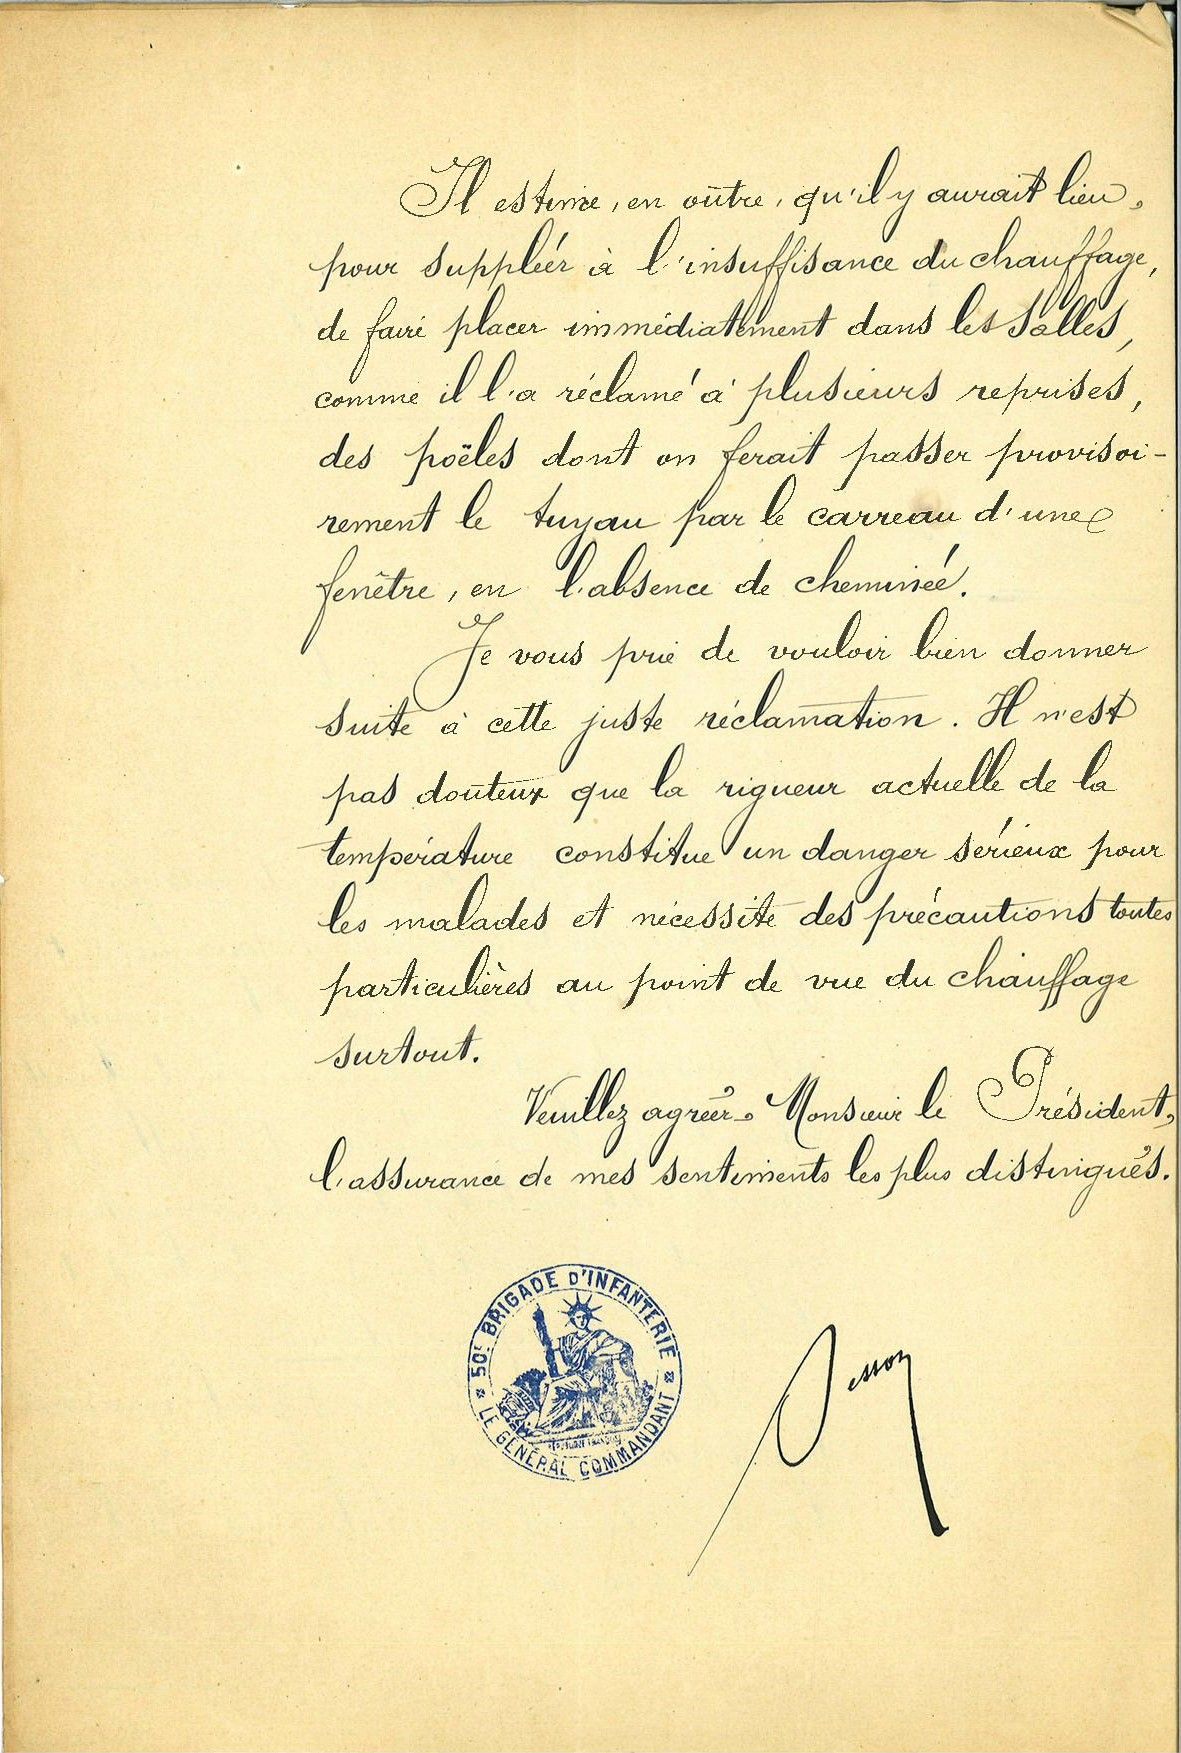 Il estime, en outre, qu'il y aurait lieu,
pour suppléer à l'insuffisance du chauffage,
de faire placer immédiatement dans les salles,
comme il l'a réclamé à plusieurs reprises,
des poëles dont on ferait passer provisoi-
rement le tuyau par le carreau d'une
fenêtre, en l'absence de cheminée.
Je vous prie de vouloir bien donner
suite à cette juste réclamation. Il n'est
pas douteux que la rigueur actuelle de la
température constitue un danger sérieux pour
les malades et nécessite des précautions toutes
particulières au point de vue du chauffage
surtout.
Veuillez agréer, Monsieur le Président,
l'assurance de mes sentiments les plus distingués.
50E BRIGADE D'INFANTERIE
LE GÉNÉRAL COMMANDANT